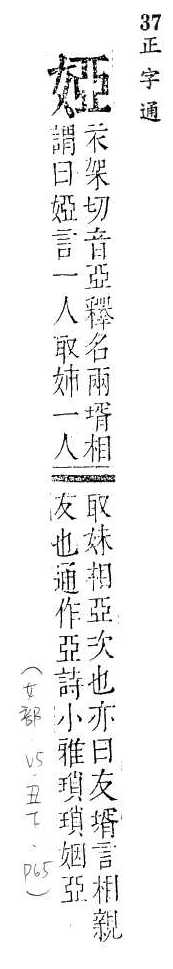 37正字通
婭
衣架切音亞釋名兩壻相
謂曰婭言一人取姊一人
取妹相亞次也亦曰友壻言相親
友也通作亞詩小雅瑣瑣姻亞
（女部．VS．丑下．P65）